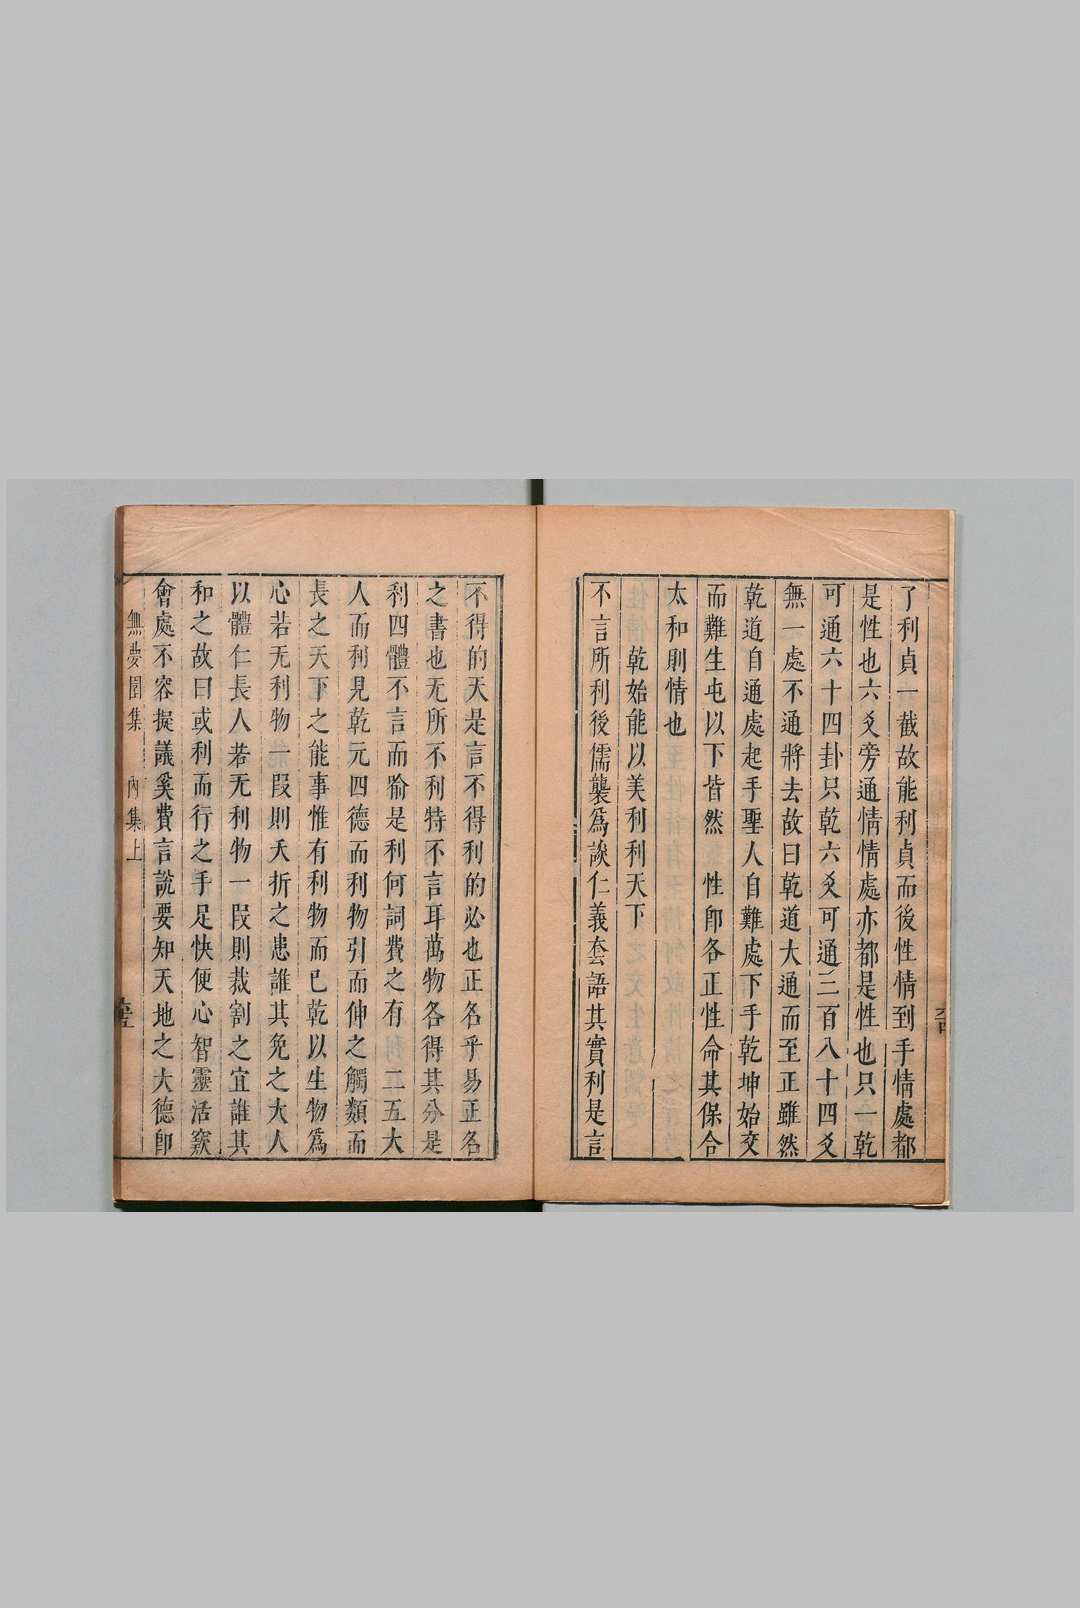 了利貞一截故能利貞而後性情到手情處都
是性也六爻旁通情情處亦都是性也只一乾
可通六十四卦只乾六爻可通三百八十四爻
無一處不通將去故曰乾道大通而至正雖然
乾道自通處起手聖人自難處下手乾坤始交
而難生屯以下皆然　性卽各正性命其保合
太和則情也
　　乾始能以美利利天下
不言所利後儒襲爲談仁義套語其實利是言
不得的天是言不得利的必也正名乎易正名
之書也无所不利特不言耳萬物各得其分是
利四體不言而喻是利何詞費之有　二五大
人而利見乾元四德而利物引而伸之觸類而
長之天下之能事惟有利物而已乾以生物爲
心若无利物一段則夭折之患誰其免之大人
以體仁長人若无利物一段則裁割之宜誰其
和之故曰或利而行之手足快便心智靈活竅
會處不容擬議奚費言說要知天地之大德卽
無夢園集　內集上